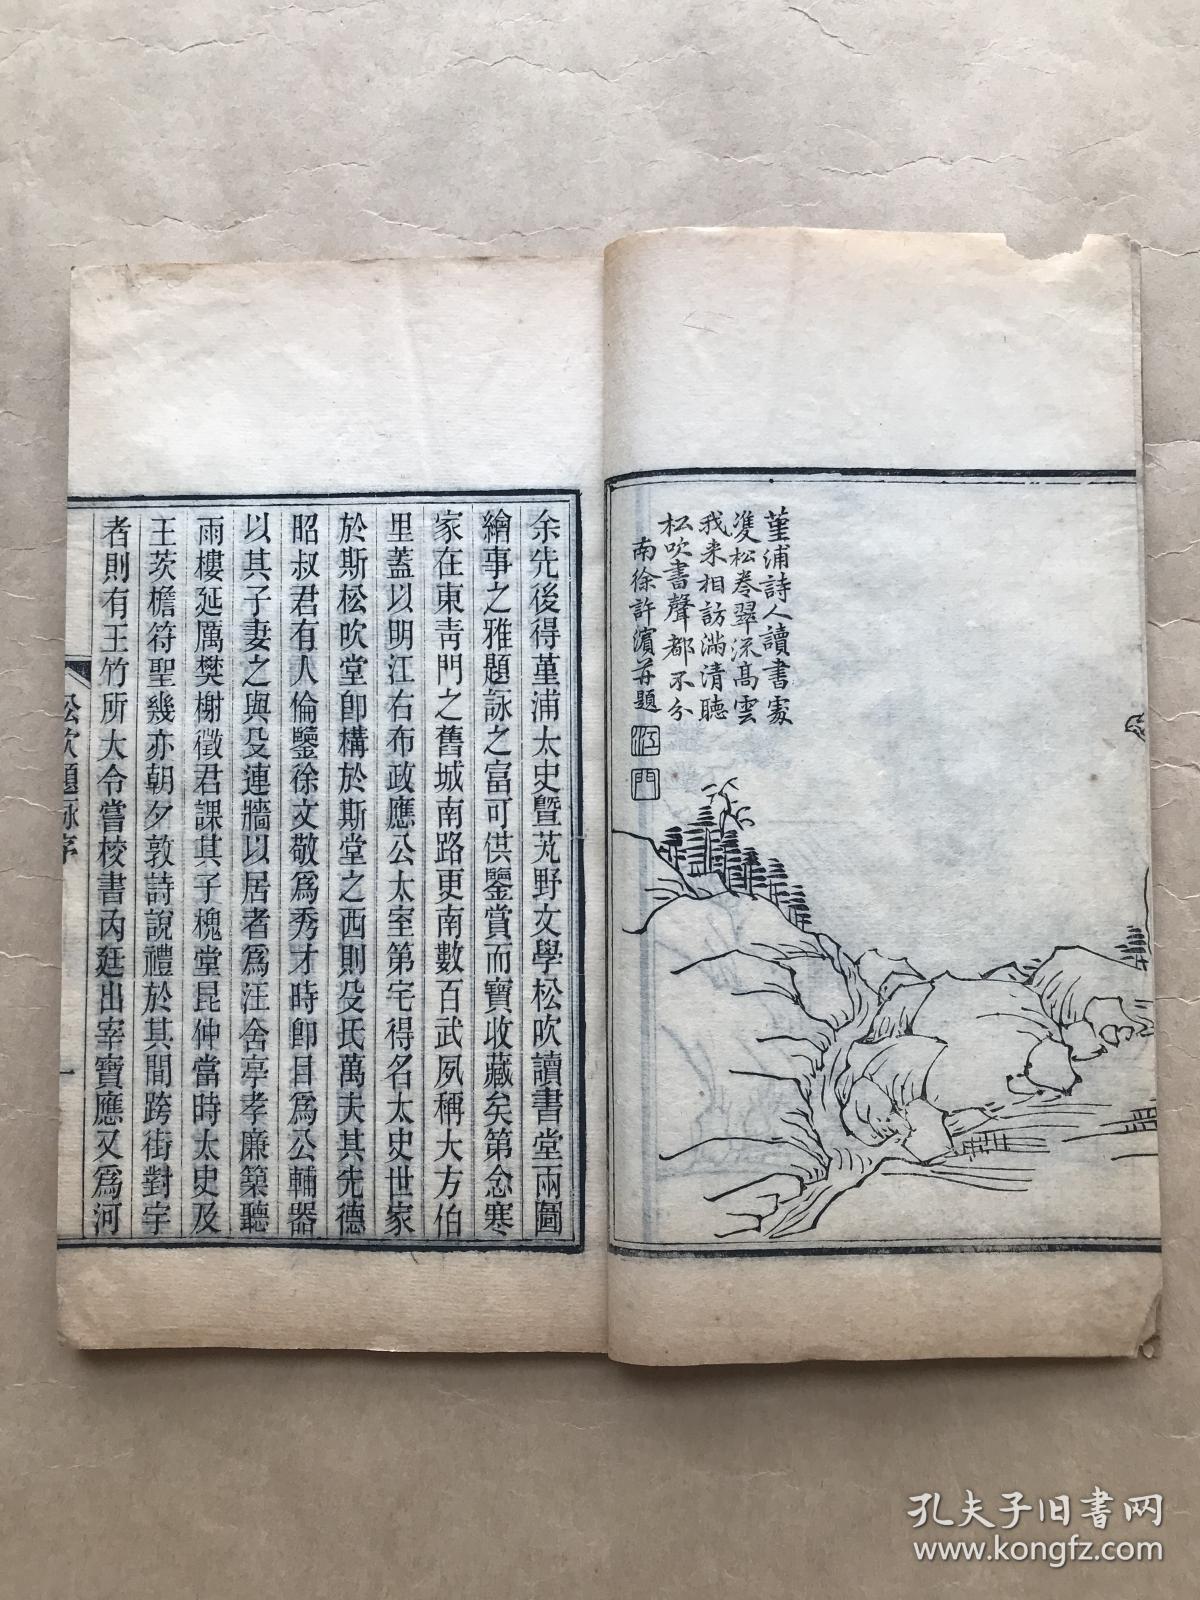 堇浦詩人讀書處
雙松卷翠流高雲
我来相訪滿清聽
松吹書聲都不分
南徐許濱并題
江門
余先後得堇浦太史曁艽野文學松吹讀書堂兩圖
繪事之雅題詠之富可供鑒賞而寶收藏矣第念寒
家在東靑門之舊城南路更南數百武夙稱大方伯
里蓋以明江右布政應公太室第宅得名太史世家
於斯松吹堂卽構於斯堂之西則殳氏萬夫其先德
昭叔君有人倫鑒徐文敬爲秀才時卽目爲公輔器
以其子妻之與殳連牆以居者爲汪舍亭孝廉築聽
雨樓延厲樊榭徵君課其子槐堂昆仲當時太史及
王茨檐符聖幾亦朝夕敦詩說禮於其間跨街對宇
者則有王竹所大令嘗校書內廷出宰寶應又爲河
松吹題詠序
一
孔夫子旧書网
www.kongfz.com